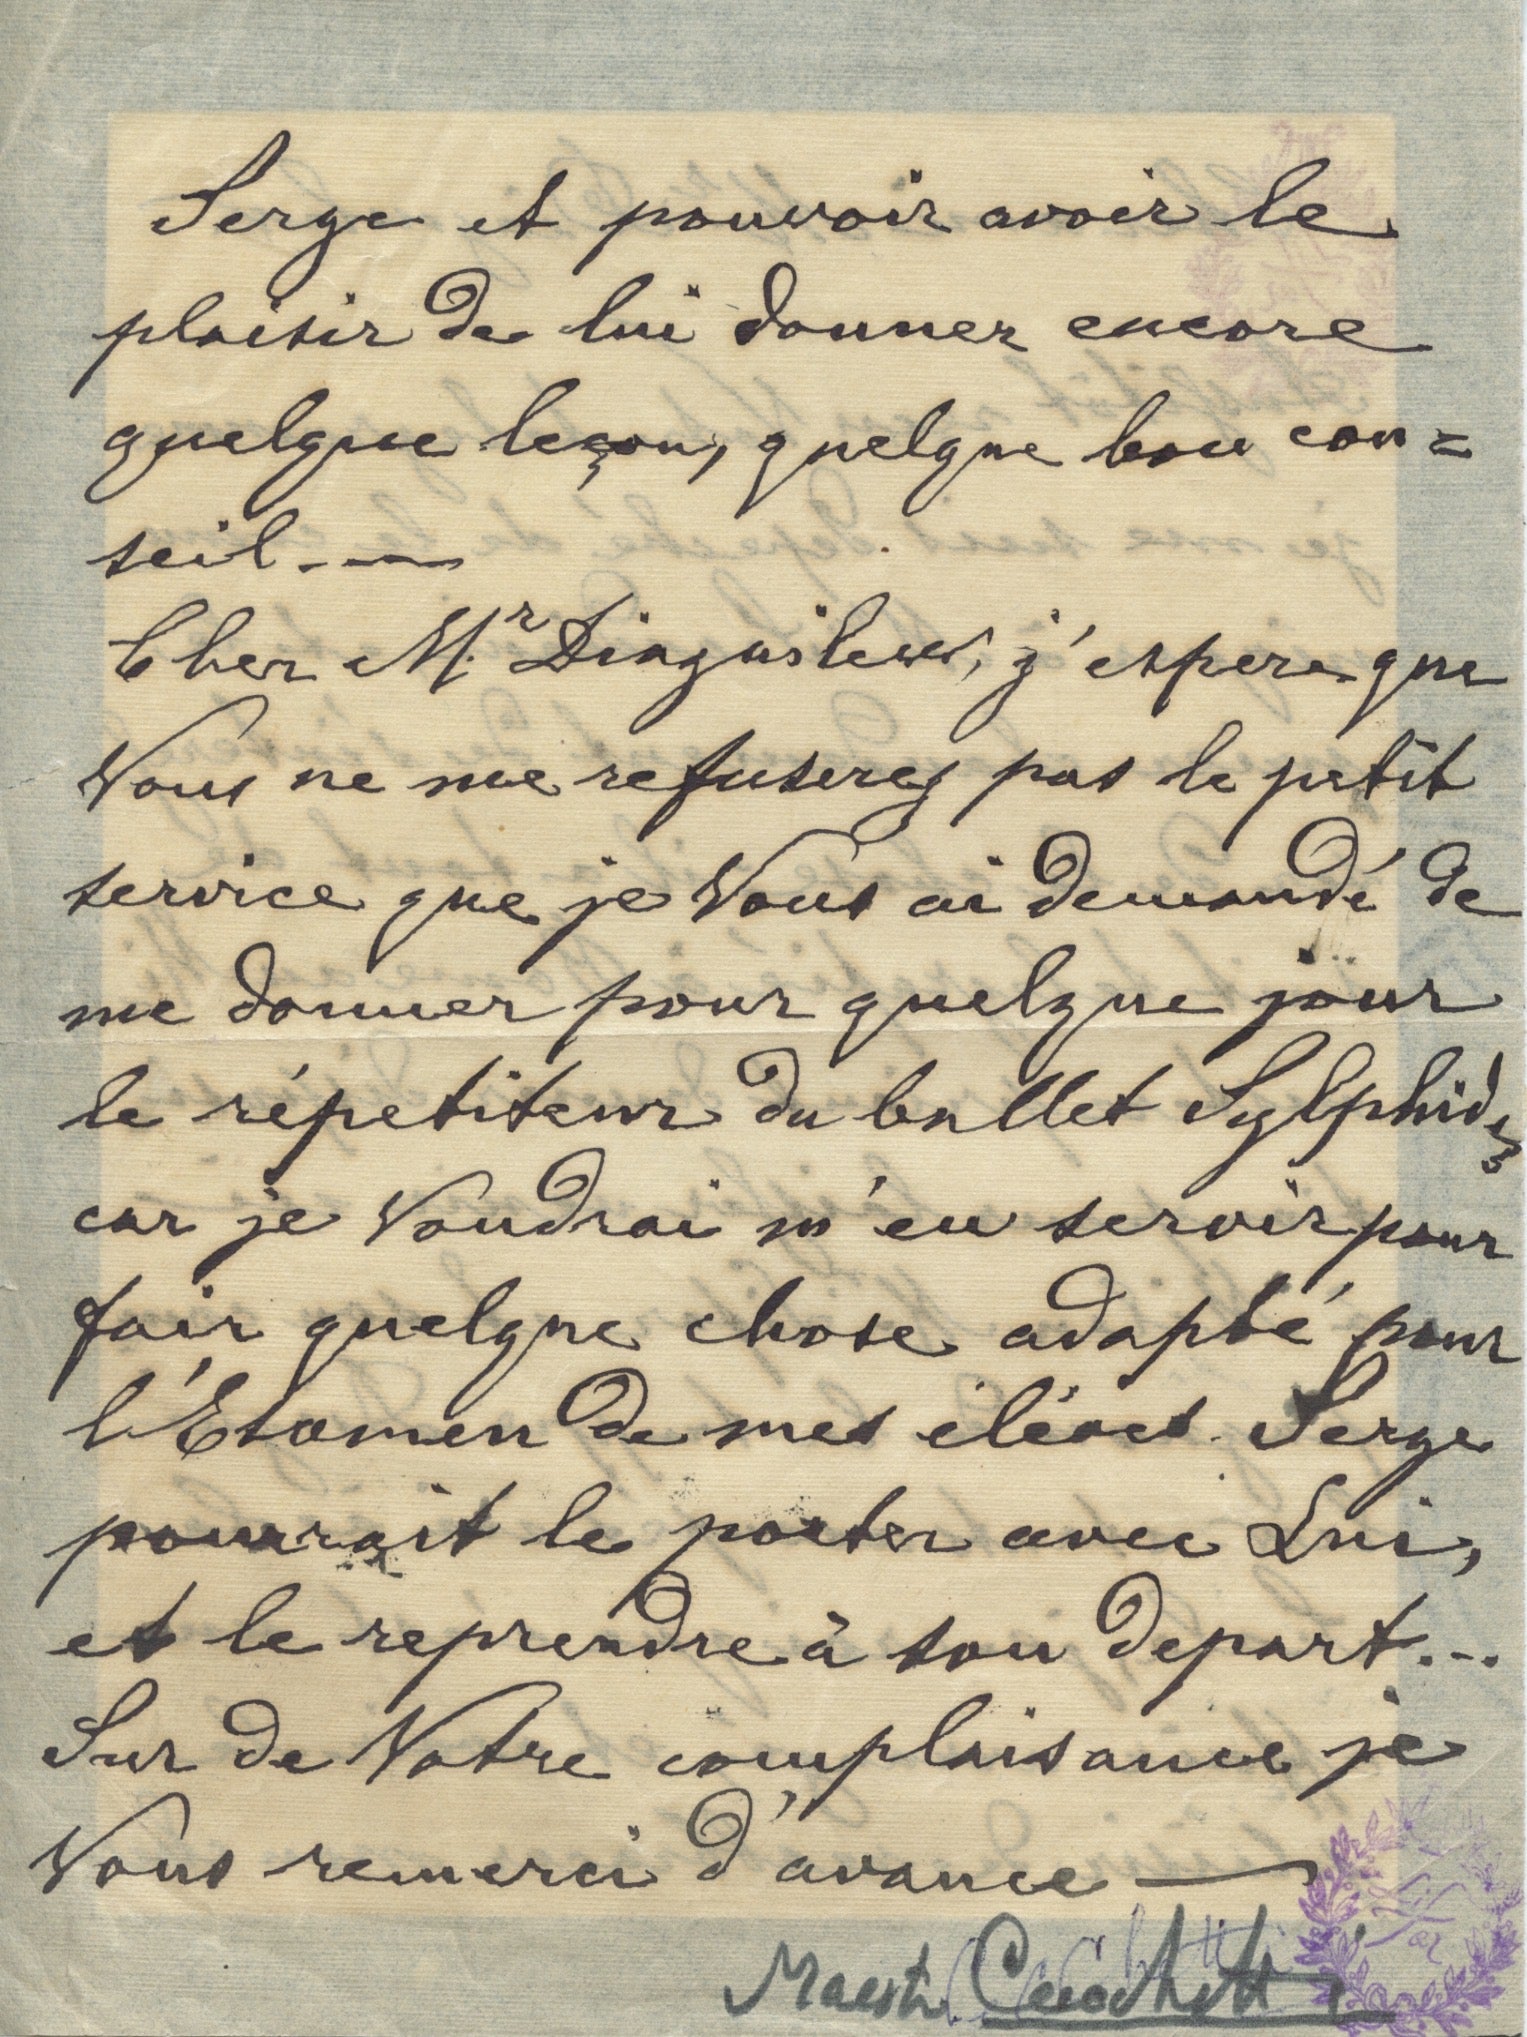 Serge et pouvoir avoir le
plaisir de lui donner encore
quelque leçon, quelque bon con=
seil.
Cher Mr Diaguilew, j'espere que
Vous ne me refuserez pas le petit
service que je Vous ai demandé de
me donner pour quelque jour
le répetiteur du ballet Sylphides
car je Voudrai m'en servir pour
fair quelque chose adapté pour
l'Examen de mes éléves. Serge
pourrait le porter avec Lui,
et le reprendre à son depart...
Sur de Votre complaisance je
Vous remerci d'avance —
Maestro Cecchetti